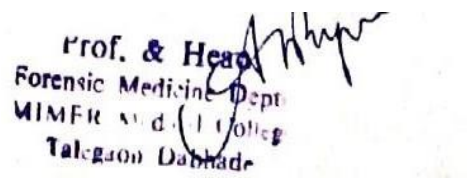 Prof. & Head
Forensic Medicine Dept.
MIMER Medical College
Talegaon Dabhade